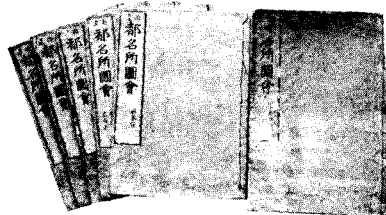 都名所圖會
都名所圖會
都名所圖會
都名所圖會
都名所圖會
名所圖會